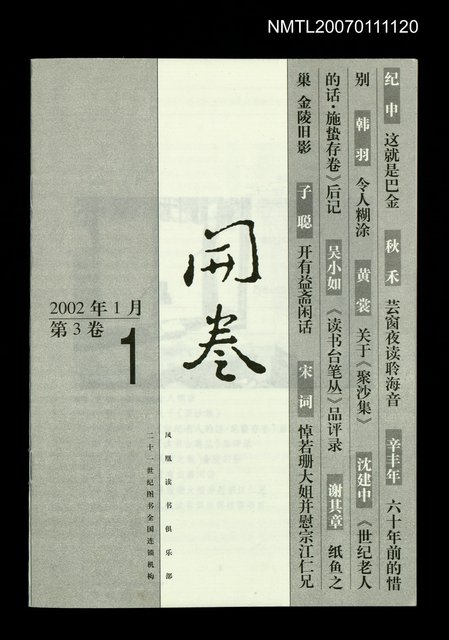 NMTL20070111120
纪申 这就是巴金 秋禾 芸窗夜读聆海音 辛丰年 六十年前的惜
别 韩羽 令人糊涂 黄裳 关于《聚沙集》 沈建中 《世纪老人
的话·施蛰存卷》后记 吴小如 《读书台笔丛》品评录 谢其章 纸鱼之
巢 金陵旧影 子聪 开有益斋闲话 宋词 悼若珊大姐并慰宗江仁兄
開卷
2002年1月
第3卷
1
凤凰读书俱乐部
二十一世纪图书全国连锁机构